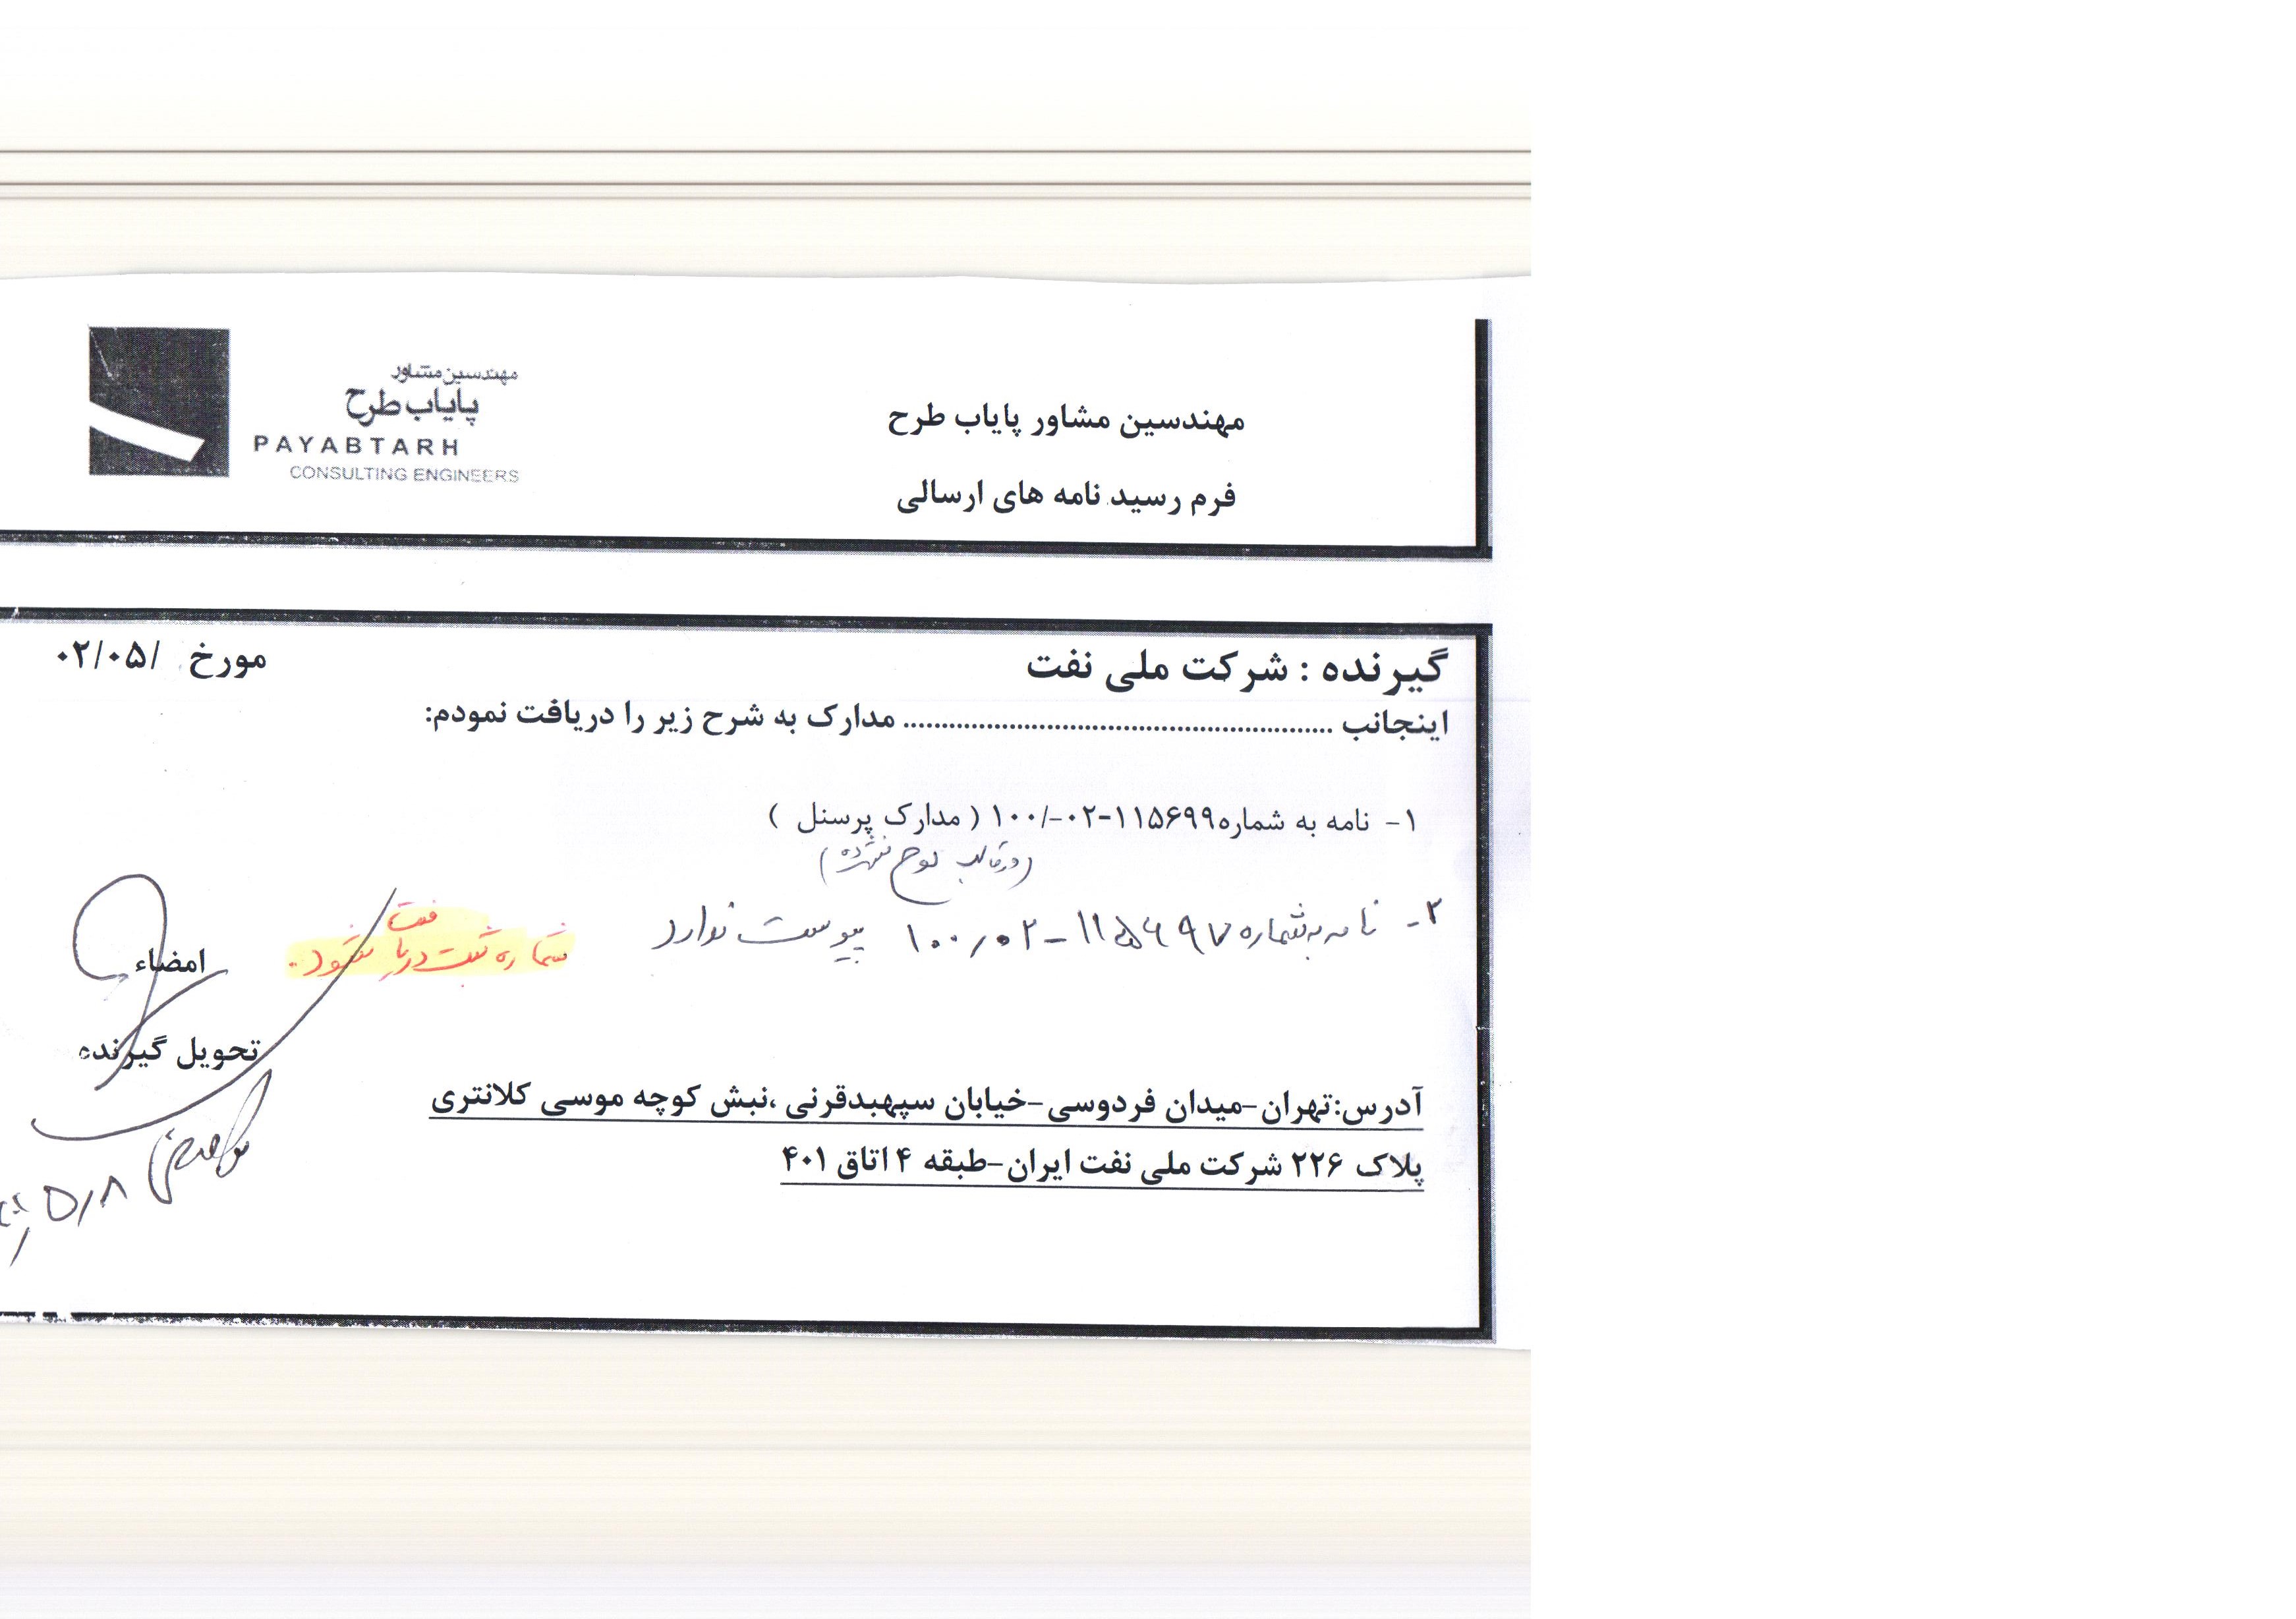 مهندسین مشاور
پایاب طرح
PAYABTARH
CONSULTING ENGINEERS
مهندسین مشاور پایاب طرح
فرم رسید نامه های ارسالی
گیرنده : شرکت ملی نفت
مورخ /۰۲/۰۵
اینجانب ........................................................ مدارک به شرح زیر را دریافت نمودم:
۱- نامه به شماره۱۱۵۶۹۹-۰۲-/۱۰۰ ( مدارک پرسنل )
(در قالب لوح فشرده)
۲- نامه به شماره ۱۱۵۶۹۷-۱۰۰/۰۲ پیوست ندارد
شماره ثبت دریافت شود.
امضاء
تحویل گیرنده
آدرس:تهران-میدان فردوسی-خیابان سپهبدقرنی ،نبش کوچه موسی کلانتری
پلاک ۲۲۶ شرکت ملی نفت ایران-طبقه ۴ اتاق ۴۰۱
۵/۸